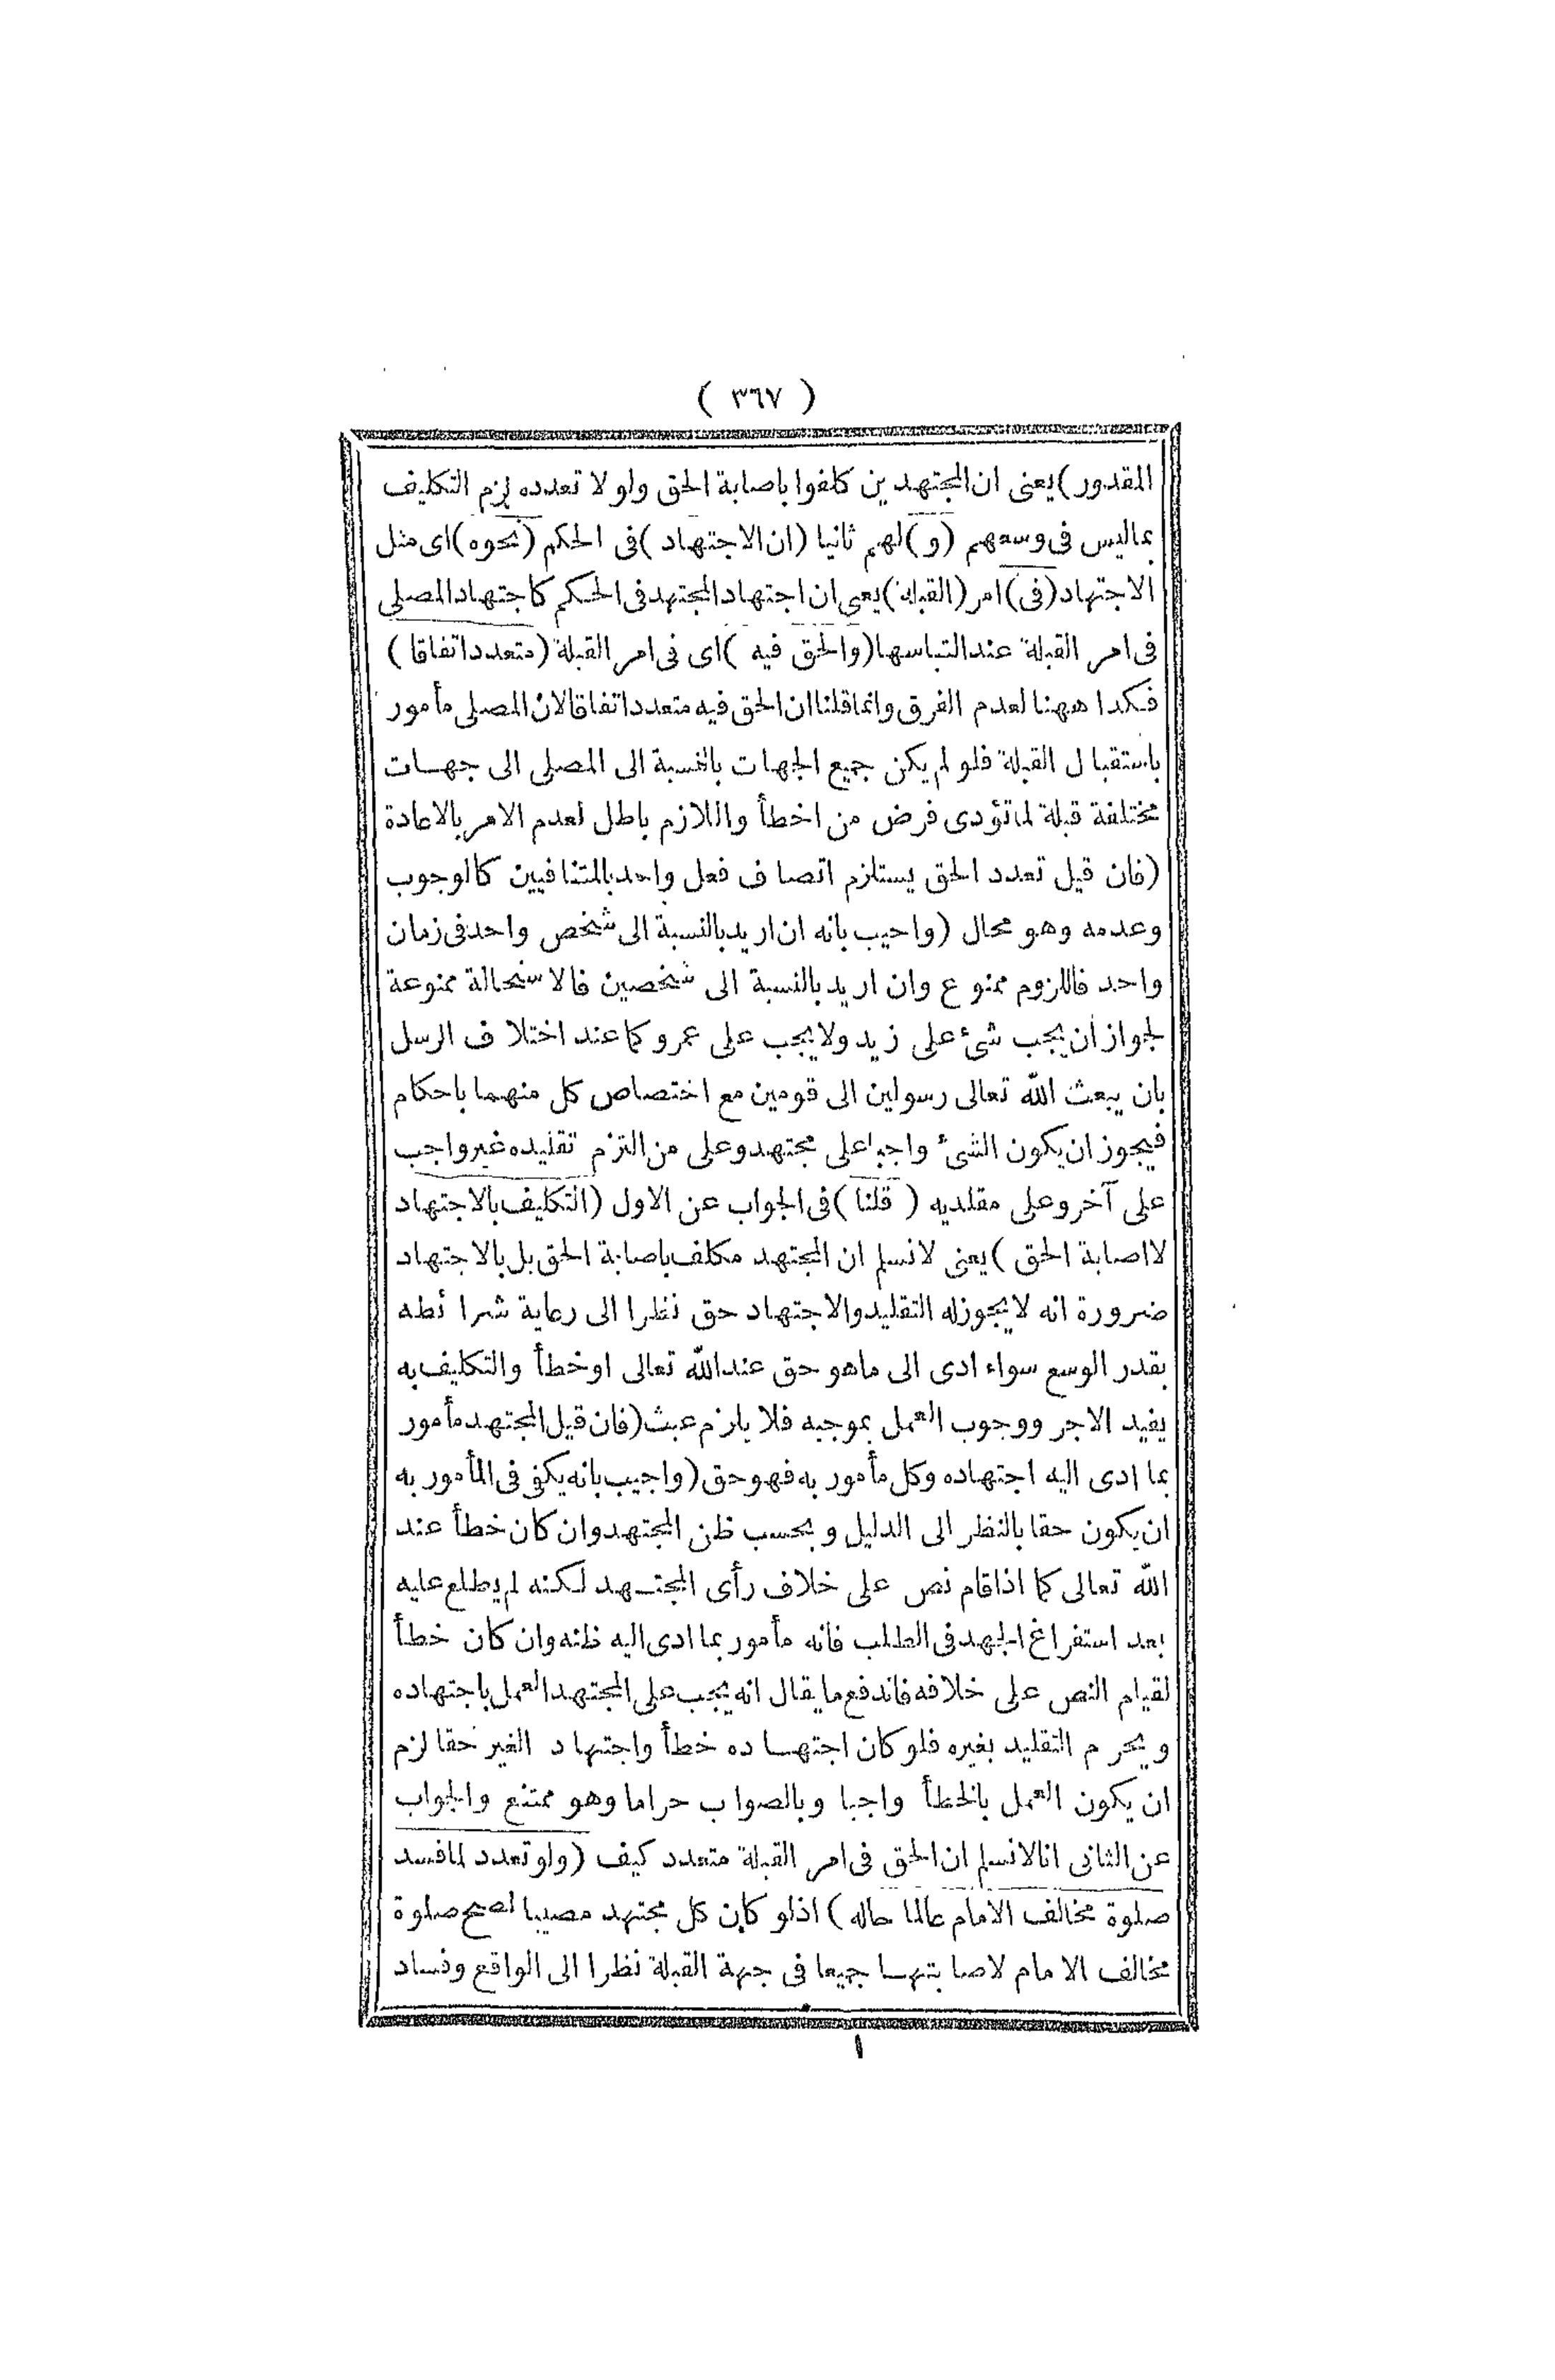 ( ٣٦٧ )
المقدور) يعنى ان المجتهدين كلفوا باصابة الحق ولولا تعدده لزم التكليف
بماليس فى وسعهم (و) لهم ثانيا (ان الاجتهاد) فى الحكم (نحوه) اى مثل
الاجتهاد (فى) امر (القبلة) يعنى ان اجتهاد المجتهد فى الحكم كاجتهاد المصلى
فى امر القبلة عند التباسها (والحق فيه) اى فى امر القبلة (متعدد اتفاقا)
فكذا ههنا لعدم الفرق وانما قلنا ان الحق فيه متعدد اتفاقا لان المصلى مأمور
باستقبال القبلة فلو لم يكن جميع الجهات بالنسبة الى المصلى الى جهات
مختلفة قبلة لما تؤدى فرض من اخطأ واللازم باطل لعدم الامر بالاعادة
(فان قيل تعدد الحق يستلزم اتصاف فعل واحد بالمتنافيين كالوجوب
وعدمه وهو محال (واجيب بانه ان اريد بالنسبة الى شخص واحد فى زمان
واحد فاللزوم ممنوع وان اريد بالنسبة الى شخصين فالاستحالة ممنوعة
لجواز ان يجب شئ على زيد ولا يجب على عمرو كما عند اختلاف الرسل
بان يبعث الله تعالى رسولين الى قومين مع اختصاص كل منهما باحكام
فيجوز ان يكون الشئ واجبا على مجتهد وعلى من التزم تقليده غير واجب
على آخر وعلى مقلديه (قلنا) فى الجواب عن الاول (التكليف بالاجتهاد
لا اصابة الحق) يعنى لا نسلم ان المجتهد مكلف باصابة الحق بل بالاجتهاد
ضرورة انه لا يجوز له التقليد والاجتهاد حق نظرا الى رعاية شرائطه
بقدر الوسع سواء ادى الى ماهو حق عند الله تعالى او خطأ والتكليف به
يفيد الاجر ووجوب العمل بموجبه فلا يلزم عبث (فان قيل المجتهد مأمور
بما ادى اليه اجتهاده وكل مأمور به فهو حق (واجيب بانه يكفى فى المأمور به
ان يكون حقا بالنظر الى الدليل وبحسب ظن المجتهد وان كان خطأ عند
الله تعالى كما اذا قام نص على خلاف رأى المجتهد لكنه لم يطلع عليه
بعد استفراغ الجهد فى الطلب فانه مأمور بما ادى اليه ظنه وان كان خطأ
لقيام النص على خلافه فاندفع ما يقال انه يجب على المجتهد العمل باجتهاده
ويحرم التقليد بغيره فلو كان اجتهاده خطأ واجتهاد الغير حقا لزم
ان يكون العمل بالخطأ واجبا وبالصواب حراما وهو ممتنع والجواب
عن الثانى انا لا نسلم ان الحق فى امر القبلة متعدد كيف (ولو تعدد لما فسد
صلوة مخالف الامام عالما حاله) اذ لو كان كل مجتهد مصيبا لصح صلوة
مخالف الامام لاصابتهما جميعا فى جهة القبلة نظرا الى الواقع وفساد